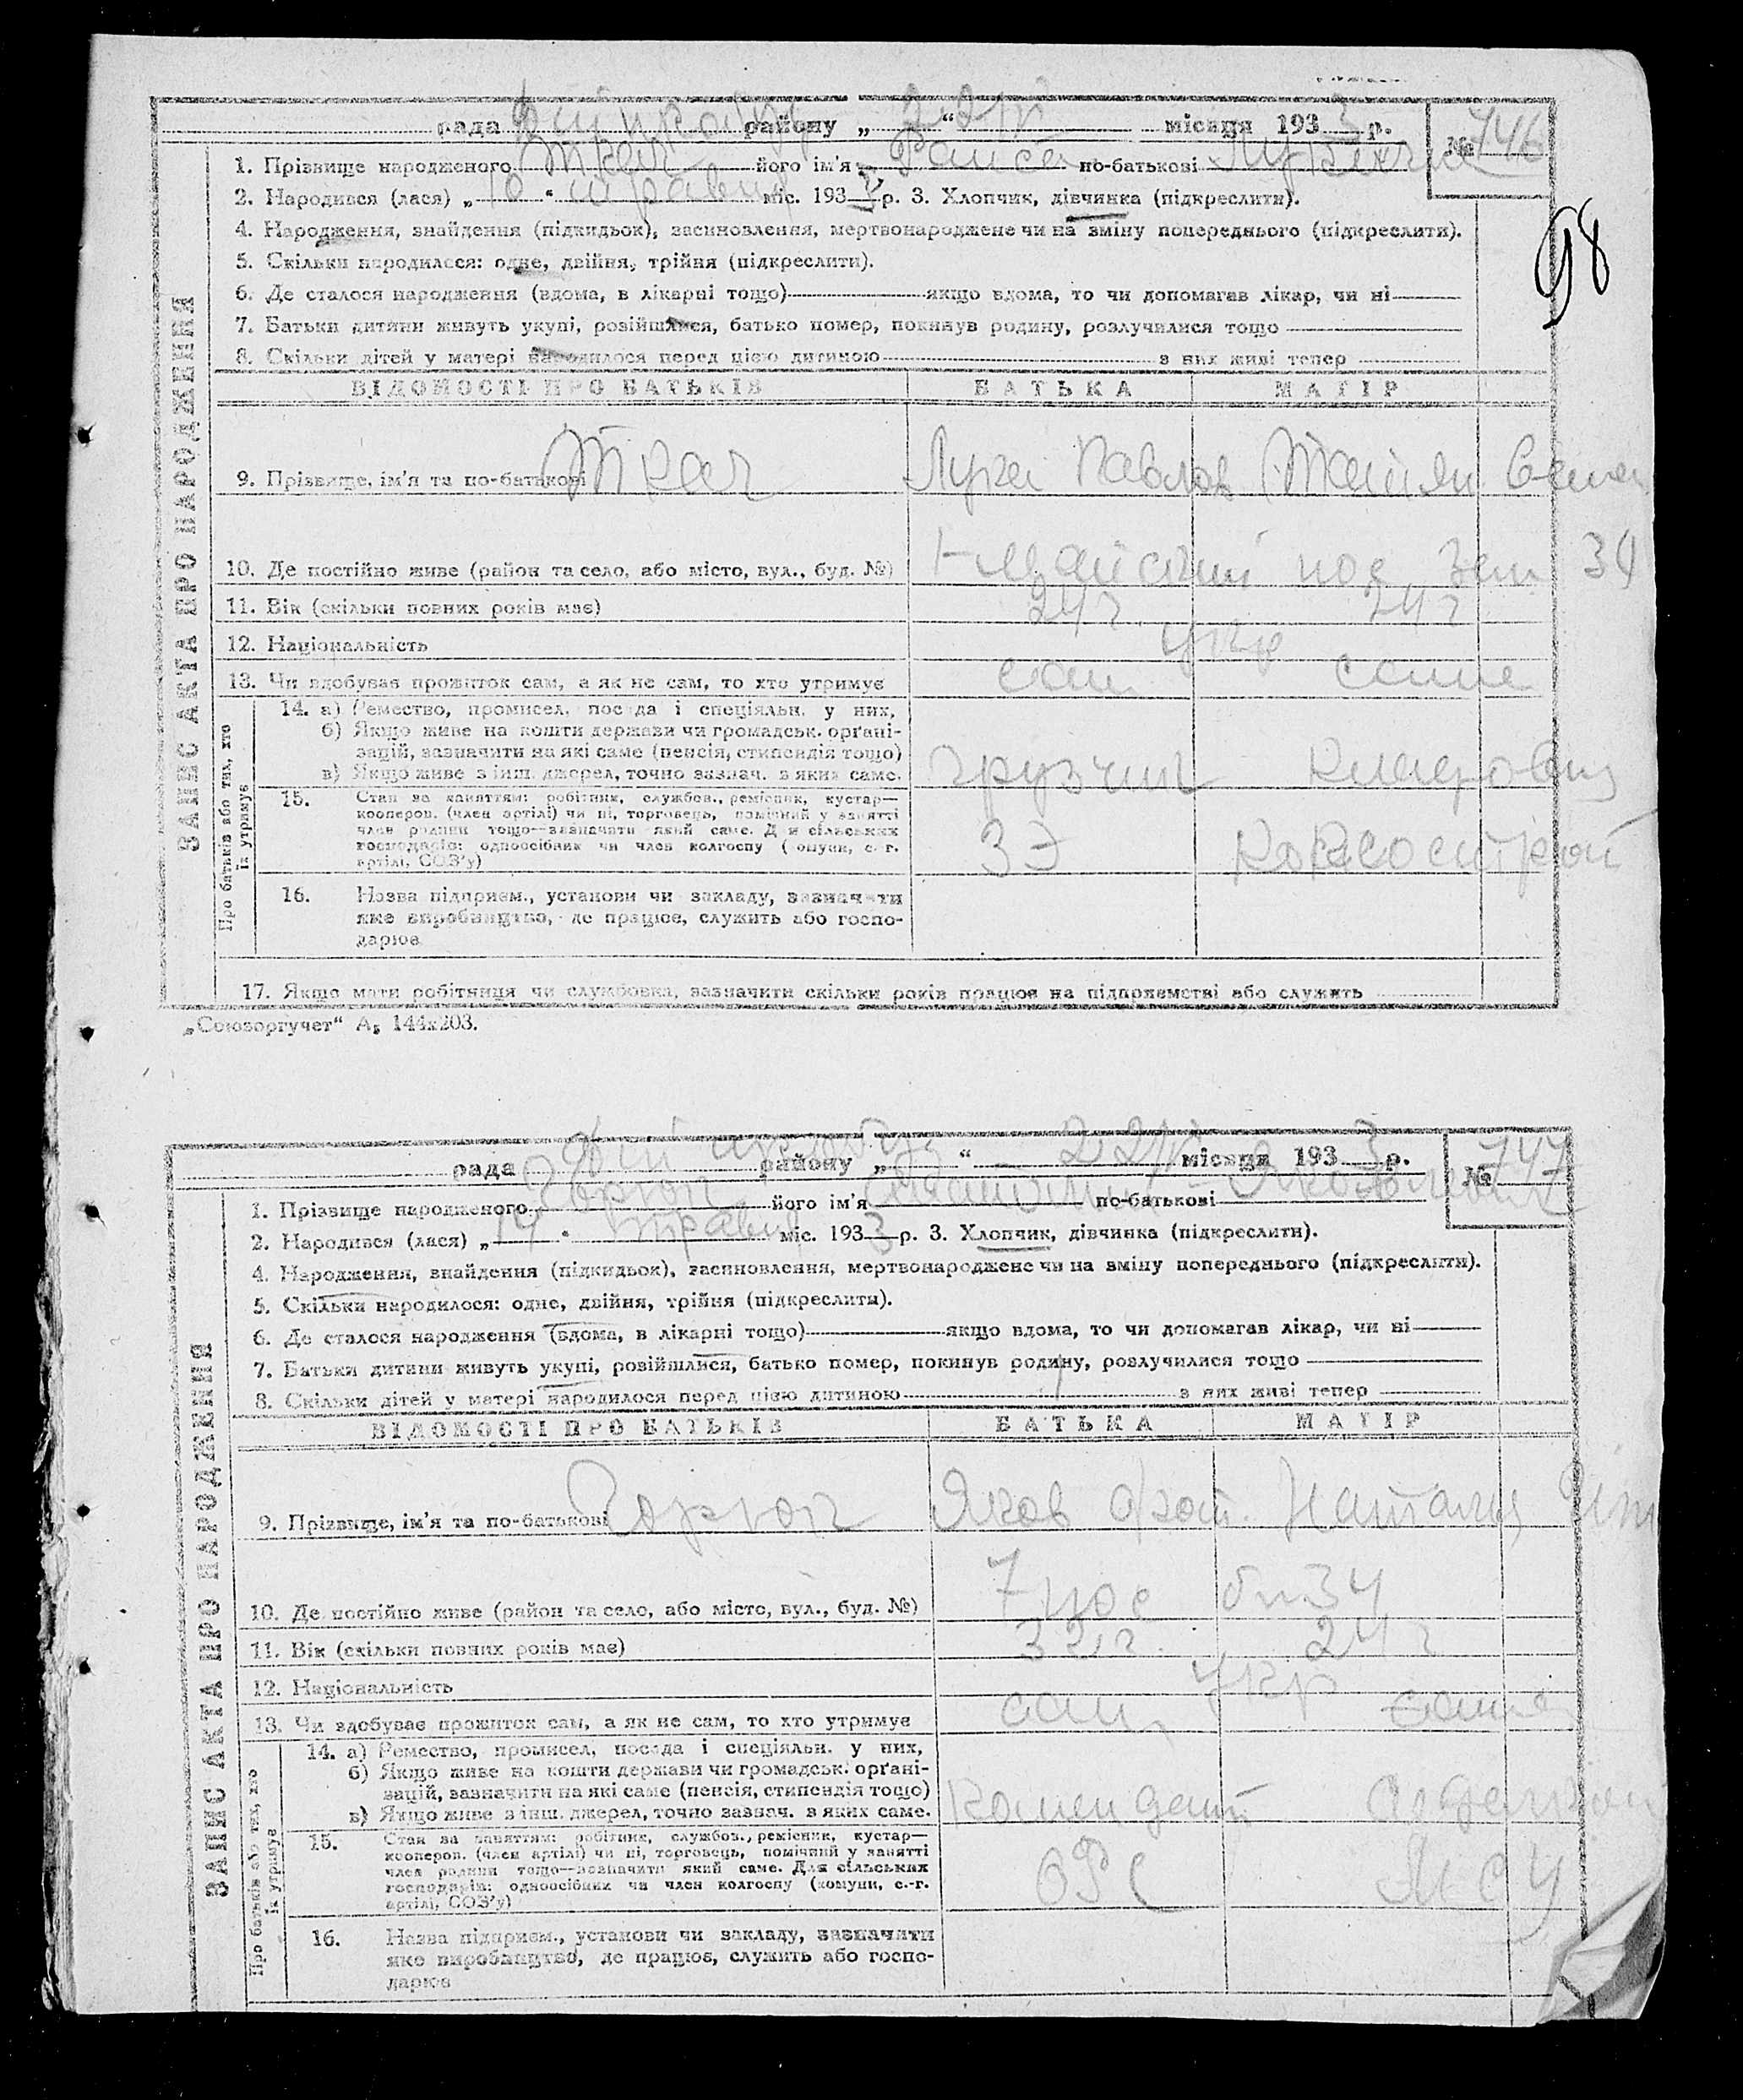 рада району „ 22/V “ місяця 1933 р. № 746
1. Прізвище народженого Ткач його ім'я Раиса по-батькові
2. Народився (лася) „10“ травня міс. 1933 р. 3. Хлопчик, дівчинка (підкреслити).
4. Народження, знайдення (підкидьок), засиновлення, мертвонароджене чи на зміну попереднього (підкреслити).
5. Скільки народилося: одне, двійня, трійня (підкреслити).
6. Де сталося народження (вдома, в лікарні тощо) якщо вдома, то чи допомагав лікар, чи ні
7. Батьки дитини живуть укупі, розійшлися, батько помер, покинув родину, розлучилися тощо
8. Скільки дітей у матері народилося перед цією дитиною з них живі тепер
98
ЗАПИС АКТА ПРО НАРОДЖЕННЯ
ВІДОМОСТІ ПРО БАТЬКІВ БАТЬКА МАТІР
9. Прізвище, ім'я та по-батькові Ткач Лука Павлов
10. Де постійно живе (район та село, або місто, вул., буд. №) пос. Зем 34
11. Вік (скільки повних років має) 24 г. 24 г
12. Національність укр
13. Чи здобуває прожиток сам, а як не сам, то хто утримує сам сама
Про батьків або тих, хто їх утримує
14. а) Ремество, промисел, посада і спеціяльн. у них,
б) Якщо живе на кошти держави чи громадськ. орґані-
зацій, зазначити на які саме (пенсія, стипендія тощо)
в) Якщо живе з інш. джерел, точно зазнач. з яких саме.
грузчик кладовщ
15. Стан за заняттям: робітник, службов., ремісник, кустар—
кооперов. (член артілі) чи ні, торговець, помічний у занятті
член родини тощо—зазначити який саме. Для сільських
господарів: одноосібник чи член колгоспу (комуни, с.-г.
артілі, СОЗ'у)
ЗЭ Коксострой
16. Назва підприєм., установи чи закладу, зазначити
яке виробництво, де працює, служить або госпо-
дарює
17. Якщо мати робітниця чи службовка, зазначити скільки років працює на підприємстві або служить
„Союзоргучет“ А₅ 144х203.
рада району „ “ 22/V місяця 1933 р. № 747
1. Прізвище народженого його ім'я по-батькові
2. Народився (лася) „14“ травня міс. 1933 р. 3. Хлопчик, дівчинка (підкреслити).
4. Народження, знайдення (підкидьок), засиновлення, мертвонароджене чи на зміну попереднього (підкреслити).
5. Скільки народилося: одне, двійня, трійня (підкреслити).
6. Де сталося народження (вдома, в лікарні тощо) якщо вдома, то чи допомагав лікар, чи ні
7. Батьки дитини живуть укупі, розійшлися, батько помер, покинув родину, розлучилися тощо
8. Скільки дітей у матері народилося перед цією дитиною з них живі тепер
ЗАПИС АКТА ПРО НАРОДЖЕННЯ
ВІДОМОСТІ ПРО БАТЬКІВ БАТЬКА МАТІР
9. Прізвище, ім'я та по-батькові Яков Наталия
10. Де постійно живе (район та село, або місто, вул., буд. №) 7 пос 34
11. Вік (скільки повних років має) 32 г. 24 г
12. Національність Укр
13. Чи здобуває прожиток сам, а як не сам, то хто утримує сам сама
Про батьків або тих, хто їх утримує
14. а) Ремество, промисел, посада і спеціяльн. у них,
б) Якщо живе на кошти держави чи громадськ. орґані-
зацій, зазначити на які саме (пенсія, стипендія тощо)
в) Якщо живе з інш. джерел, точно зазнач. з яких саме.
комендант
15. Стан за заняттям: робітник, службов., ремісник, кустар—
кооперов. (член артілі) чи ні, торговець, помічний у занятті
член родини тощо—зазначити який саме. Для сільських
господарів: одноосібник чи член колгоспу (комуни, с.-г.
артілі, СОЗ'у)
ОРС МСУ
16. Назва підприєм., установи чи закладу, зазначити
яке виробництво, де працює, служить або госпо-
дарює